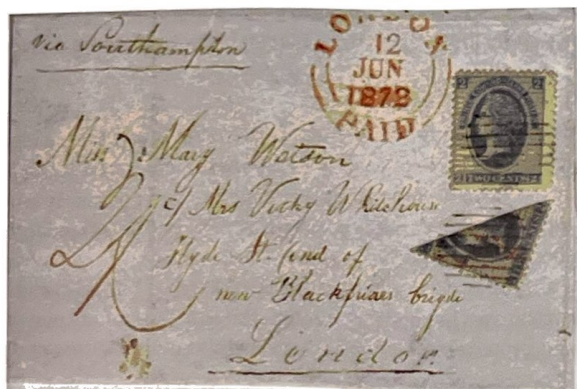 via Southampton
LONDON
12
JUN
1872
PAID
2 2
2 TWO CENTS 2
Miss Mary Watson
c/ Mrs Vicky Whitehouse
Hyde St. (end of
new Blackfriars brigde
London